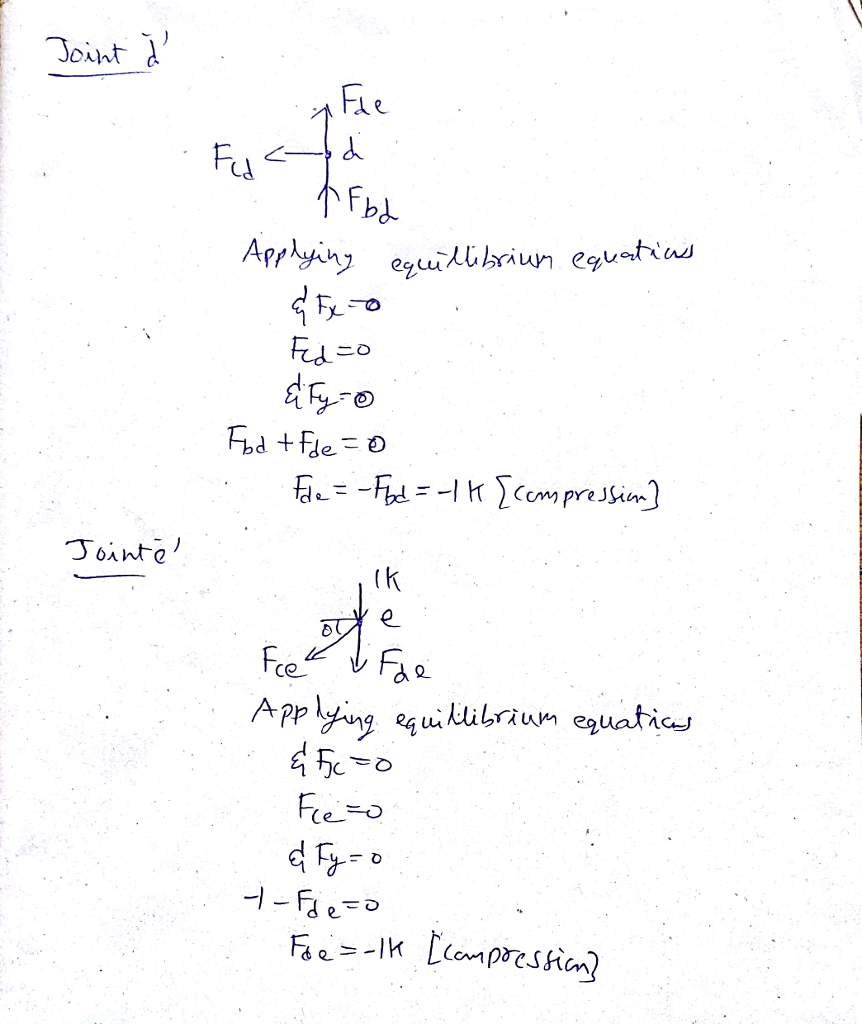 Joint d'
Fde
Fcd d
Fbd
Applying equillibrium equations
Σ Fx = 0
Fcd = 0
Σ Fy = 0
Fbd + Fde = 0
Fde = -Fbd = -1K [compression]
Joint e'
1K
α e
Fce Fde
Applying equillibrium equations
Σ Fx = 0
Fce = 0
Σ Fy = 0
-1 - Fde = 0
Fde = -1K [compression]